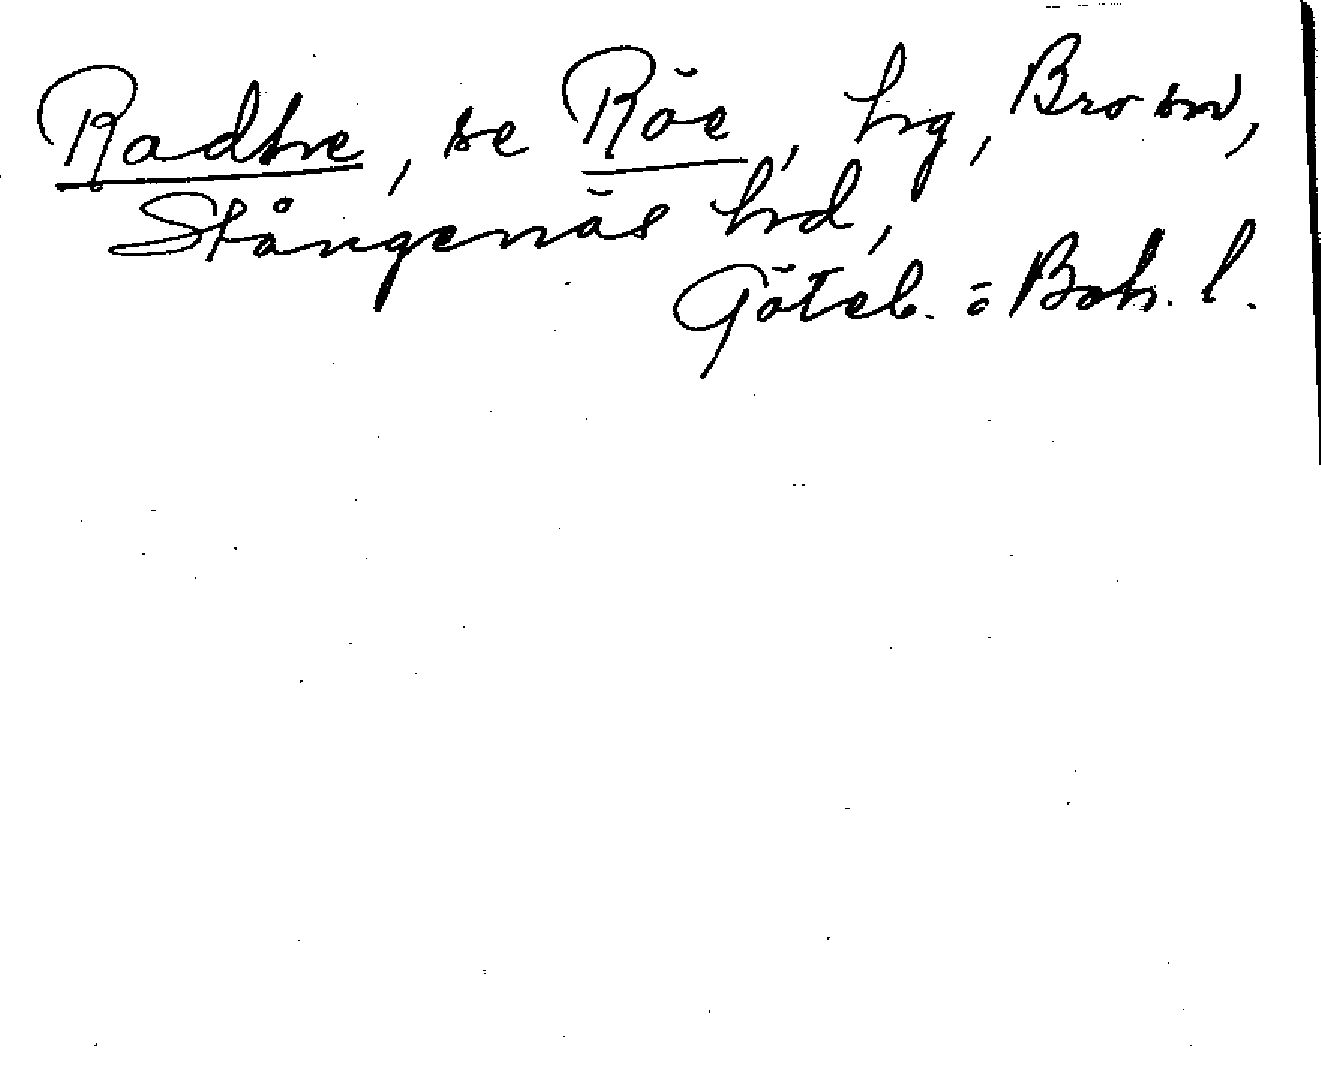 Radhe, se Röe, hg, Bro sn,
Stångenäs hd,
Göteb. o Boh. l.